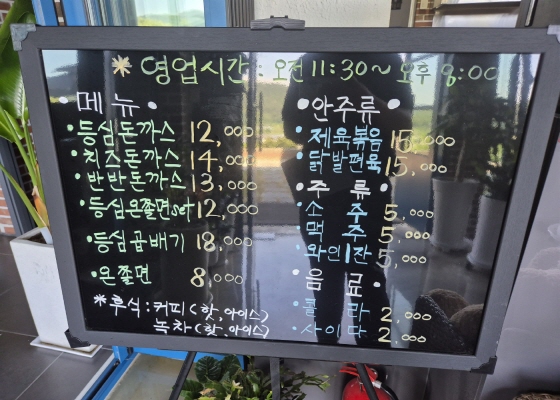 * 영업시간 : 오전 11:30 ~ 오후 8:00
• 메 뉴 •
• 등심돈까스 12,000
• 치즈돈까스 14,000
• 반반돈까스 13,000
• 등심온쫄면set 12,000
• 등심곱배기 18,000
• 온쫄면 8,000
* 후식 : 커피 (핫, 아이스)
녹차 (핫, 아이스)
• 안주류 •
• 제육볶음 15,000
• 닭발편육 15,000
• 주 류 •
• 소 주 5,000
• 맥 주 5,000
• 와인1잔 5,000
• 음 료 •
• 콜 라 2,000
• 사이다 2,000